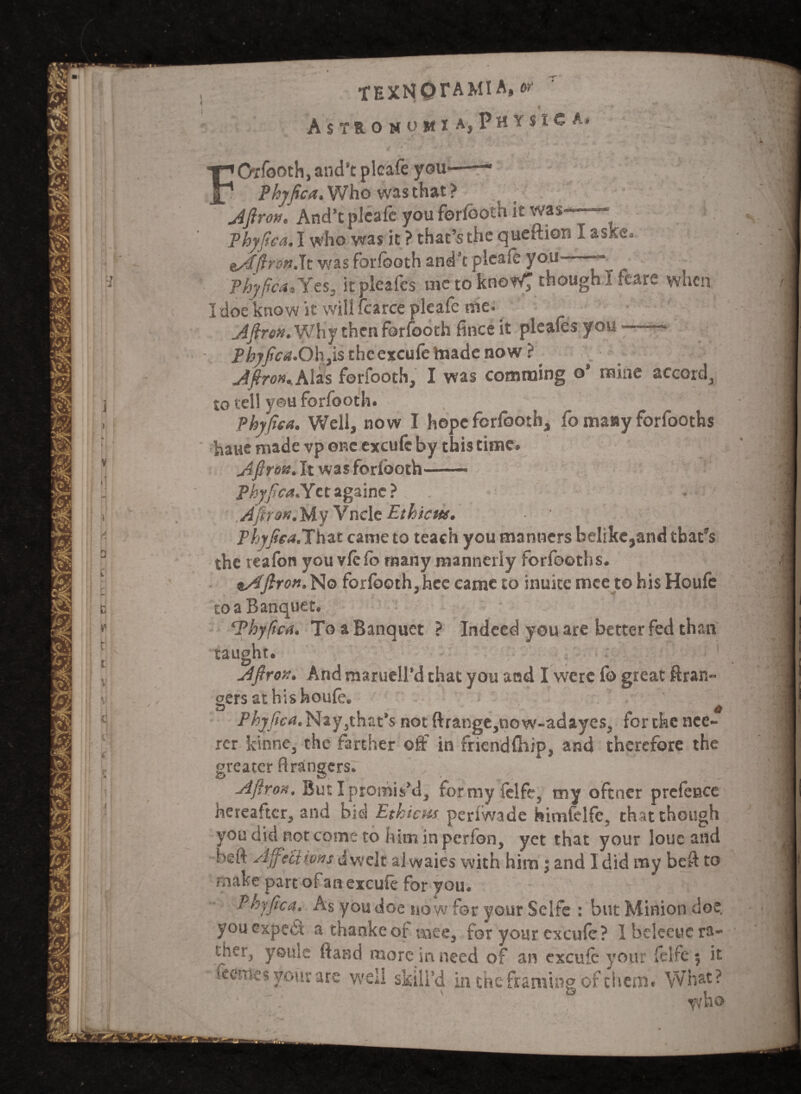 ΤΕΧΝΟΓΑΜΙΑ, or
ASTRONOMIA, PHYSICA.
FOrſooth, and't pleaſe you——
Phyſica. Who was that?
Aſtron. And't pleaſe you forſooth it was——
Phyſica. I who was it? that's the queſtion I aske.
Aſtron. It was forſooth and't pleaſe you——
Phyſica. Yes, it pleaſes me to know, though I feare when
I doe know it will ſcarce pleaſe me.
Aſtron. Why then forſooth ſince it pleaſes you——
Phyſica. Oh, is the excuſe made now?
Aſtron. Alas forſooth, I was comming o' mine accord,
to tell you forſooth.
Phyſica. Well, now I hope forſooth, ſo many forſooths
haue made vp one excuſe by this time.
Aſtron. It was forſooth——
Phyſica. Yet againe?
Aſtron. My Vncle Ethicus.
Phyſica. That came to teach you manners belike, and that's
the reaſon you vſe ſo many mannerly forſooths.
Aſtron. No forſooth, hee came to inuite mee to his Houſe
to a Banquet.
Phyſica. To a Banquet? Indeed you are better fed than
taught.
Aſtron. And maruell'd that you and I were ſo great ſtran-
gers at his houſe.
Phyſica. Nay, that's not ſtrange, now-adayes, for the nee-
rer kinne, the farther off in friendſhip, and therefore the
greater ſtrangers.
Aſtron. But I promis'd, for my ſelfe, my oftner preſence
hereafter, and bid Ethicus perſwade himſelfe, that though
you did not come to him in perſon, yet that your loue and
beſt Affections dwelt alwaies with him; and I did my beſt to
make part of an excuſe for you.
Phyſica. As you doe now for your Selfe: but Minion doe
you expect a thanke of mee, for your excuſe? I beleeue ra-
ther, youle ſtand more in need of an excuſe your ſelfe; it
ſeemes your are well skill'd in the framing of them. What?
who